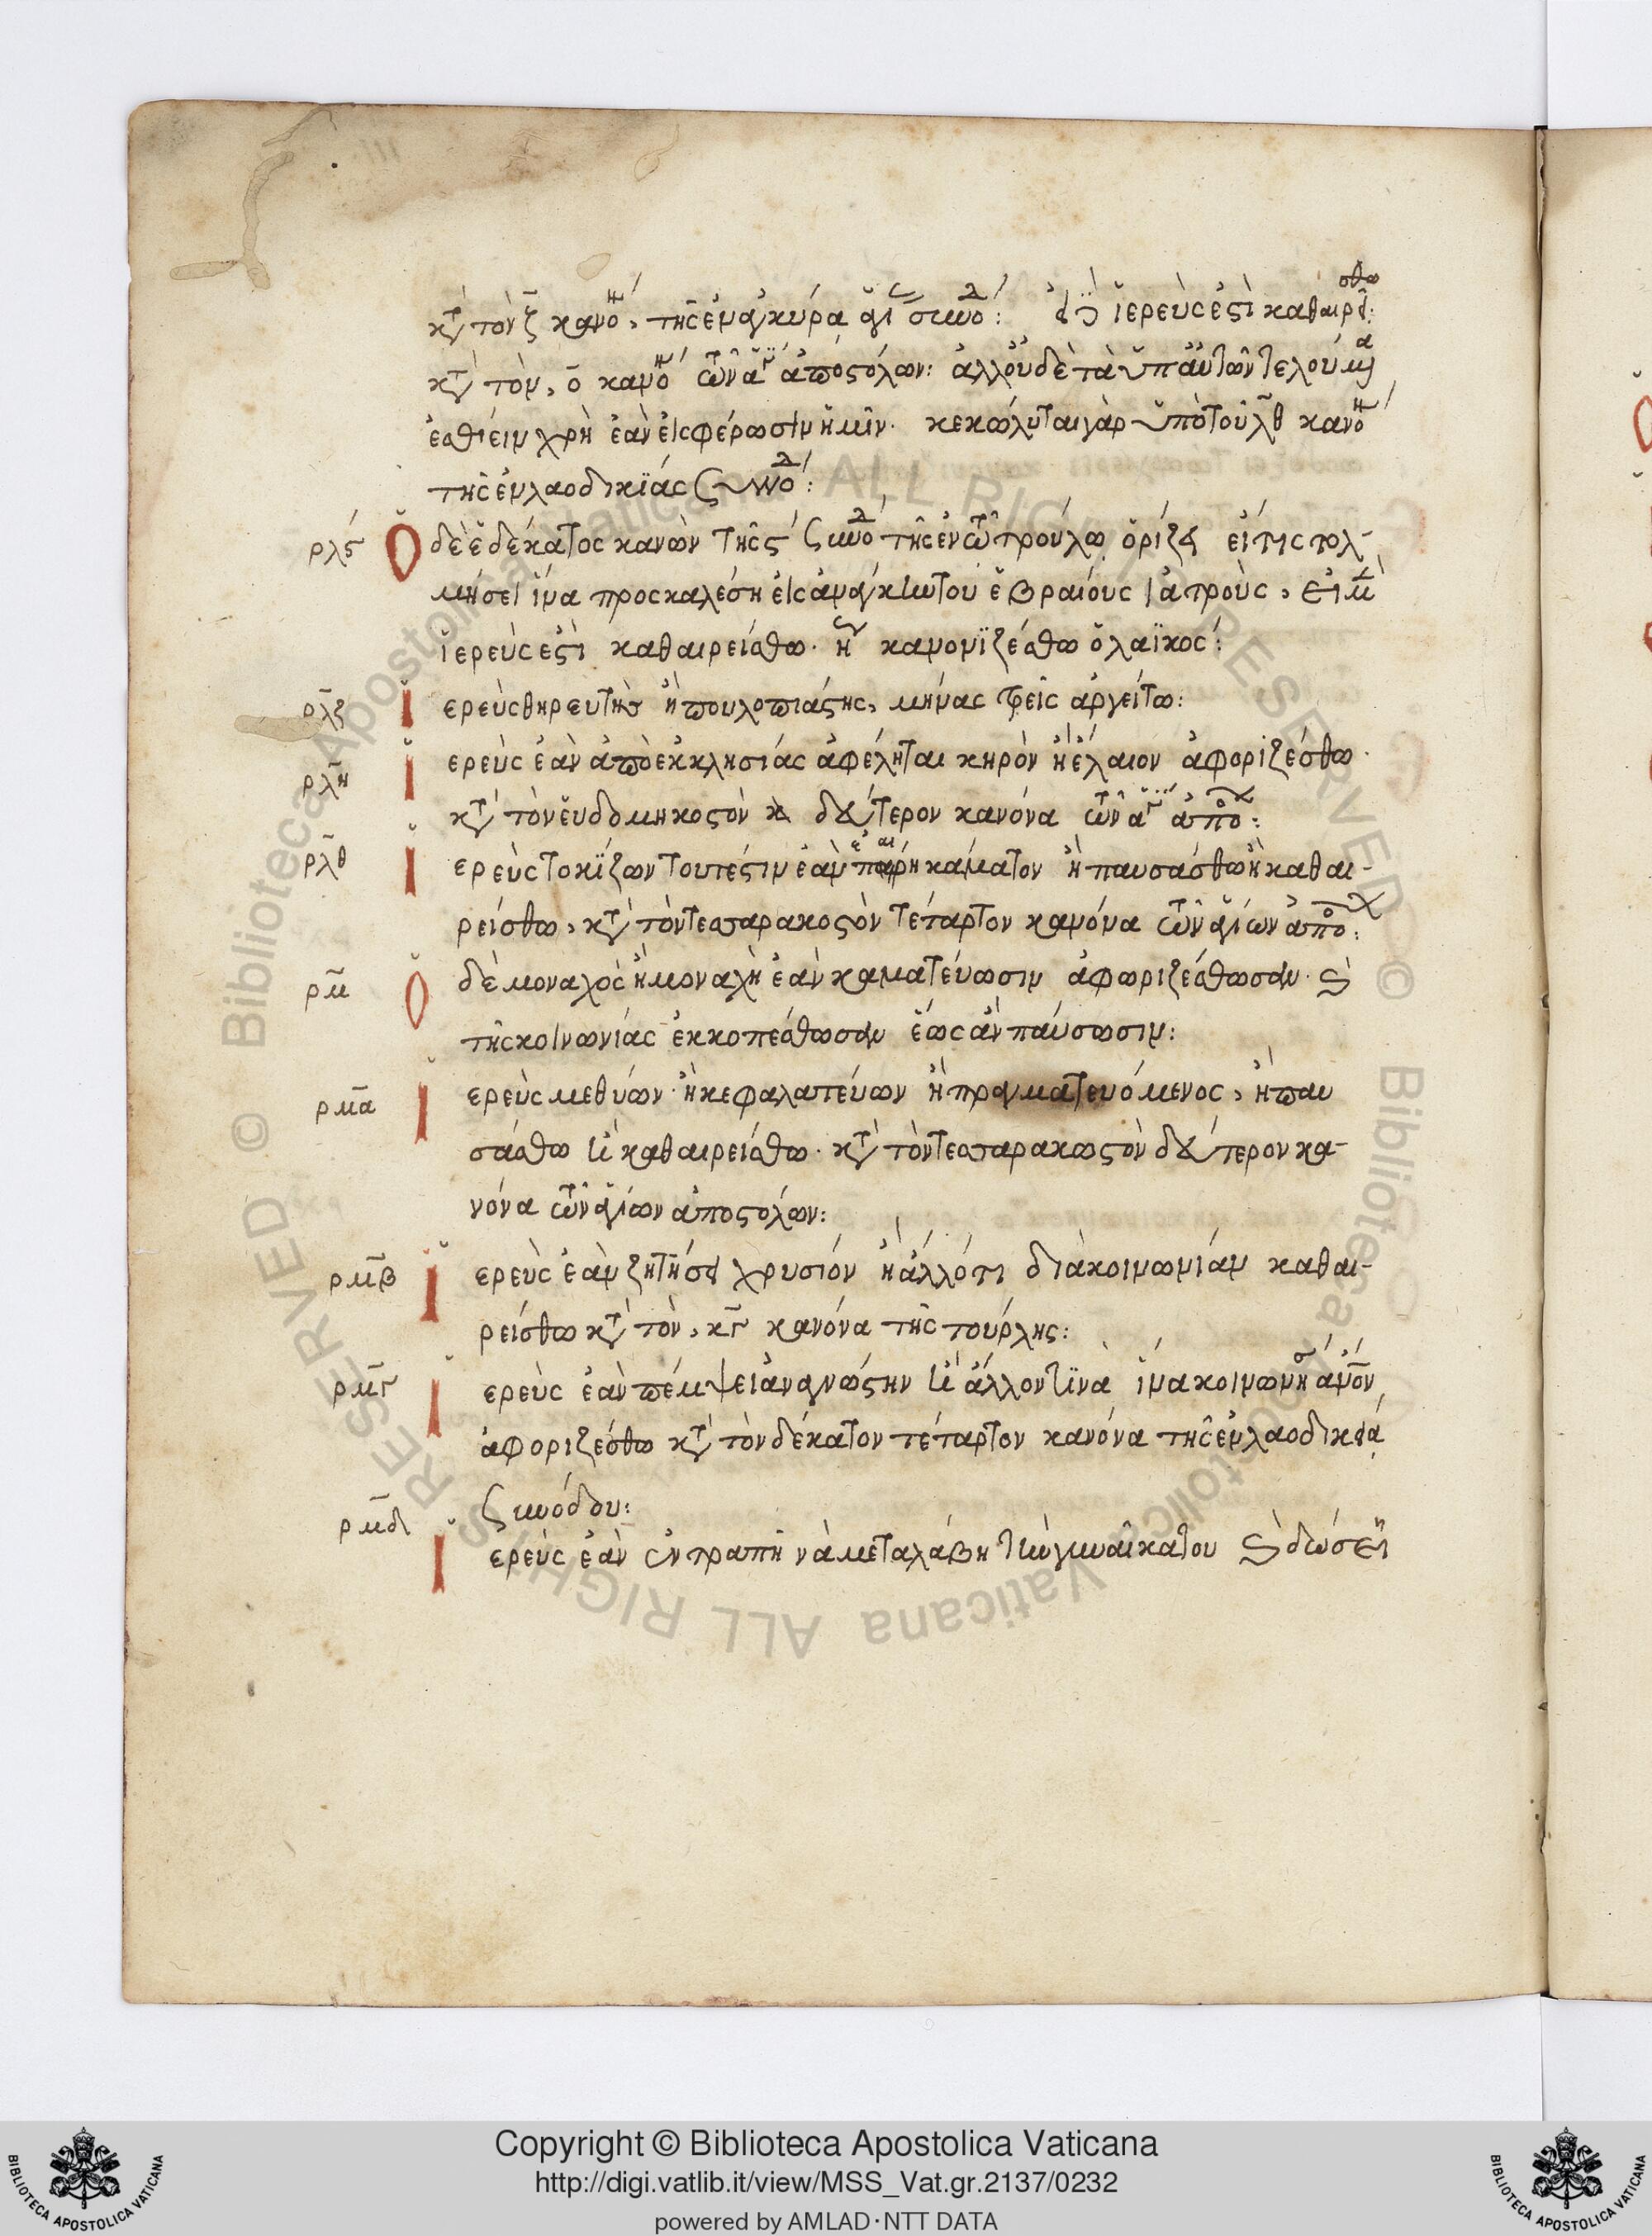 κατὰ τὸν ζ κανό, τῆς ἐν ἀγκύρα ἁγί συνό: εἰ δὲ ἱερεὺς ἐστὶ καθαιρείσθω:
κατὰ τὸν, ο κανό τῶν ἁγί ἀποστόλων: ἀλλ οὐδὲ τὰ ὑπ αὐτῶν τελούμενα
ἐσθίειν χρὴ ἐὰν εἰσφέρωσιν ἡμῖν. κεκώλυται γὰρ ὑπὸ τοῦ λθ κανό
τῆς ἐν λαοδικίας συνό:
ρλς Ὁ δὲ ἑδέκατος κανὼν τῆς ς συνό τῆς ἐν τῶ τρούλω ὁρίζει εἴ τις τολ-
μήσει ἵνα προσκαλέση εἰς ἀνάγκην του ἑβραίους ἰατρους, εἰ μὲν
ἱερεὺς ἐστὶ καθαιρείσθω. ἢ κανονϊζέσθω ὁ λαϊκος:
ρλζ Ἱ ερεὺς θηρευτὴς ἢ πουλοπιάστης, μήνας τρεῖς ἀργείτω:
ρλη Ἱ ερεὺς ἐὰν ἀπὸ ἐκκλησίας ἀφέληται κηρὸν ἢ ἔλαιον ἀφοριζέσθω.
κατὰ τὸν ἑυδομηκοστὸν κ δεύτερον κανόνα τῶν ἁγί ἀπο:
ρλθ Ἱ ερεὺς τοκίζων τουτέστιν ἐὰν ἐπαίρη κάματον ἢ παυσάσθω ἢ καθαι-
ρείσθω, κατὰ τὸν τεσσαρακοστὸν τέταρτον κανόνα τῶν ἁγίων ἀπο:
ρμ Ὁ δὲ μοναχὸς ἢ μοναχὴ ἐὰν καματεύωσιν ἀφωριζέσθωσαν. καὶ
τῆς κοινωνίας ἐκκοπέσθωσαν ἕως ἂν παύσωσιν:
ρμα Ἱ ερεὺς μεθύων. ἢ κεφαλαττεύων ἢ πραγματευόμενος, ἢ παυ
σάσθω ἢ καθαιρείσθω. κατὰ τὸν τεσσαρακωστὸν δεύτερον κα-
νόνα τῶν ἁγίων ἀποστόλων:
ρμβ Ἱ ερεὺς ἐὰν ζητήσει χρυσίον ἢ ἄλλό τι διὰ κοινωνίαν καθαι-
ρείσθω κατὰ τὸν, κγ κανόνα τῆς τούρλης:
ρμγ Ἱ ερεὺς ἐὰν πέμψει ἀναγνώστην ἢ ἄλλον τϊνὰ ἵνα κοινωνήση
ἀφοριζέσθω κατὰ τὸν δέκατον τέταρτον κανόνα τῆς ἐν λαοδικεία
συνόδου:
ρμδ Ἱ ερεὺς ἐὰν ἐντραπῆ νὰ μεταλάβη τὴν γυναῖκα του καὶ δώσει
Copyright © Biblioteca Apostolica Vaticana
http://digi.vatlib.it/view/MSS_Vat.gr.2137/0232
powered by AMLAD·NTT DATA